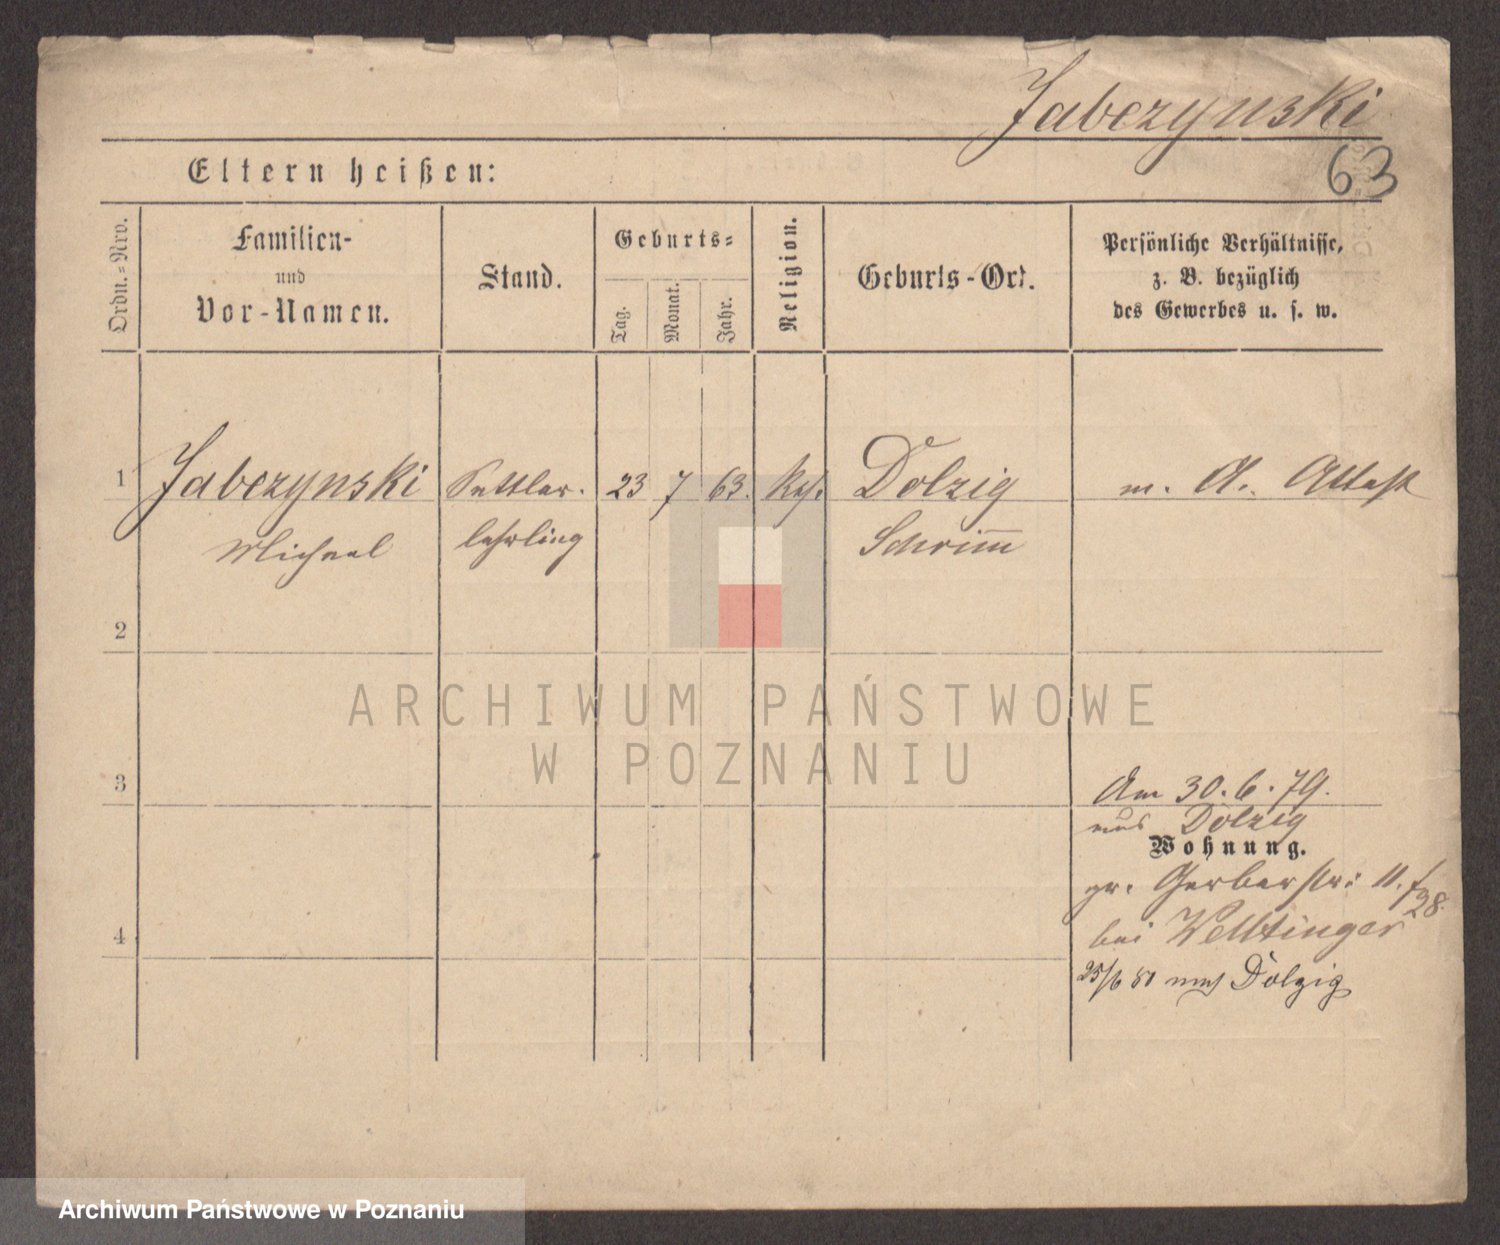 Jabczynski
63
Eltern heißen:
Ordn.-Nro.
Familien-
und
Vor-Namen.
Stand.
Geburts-
Tag.
Monat.
Jahr.
Religion.
Geburts-Ort.
Persönliche Verhältnisse,
z. B. bezüglich
des Gewerbes u. s. w.
1 Jabczynski Sattler- 23 7 63. Dolzig m. A. Attest
Michael lehrling Schrimm
2
ARCHIWUM PAŃSTWOWE
W POZNANIU
3
Am 30.6.79.
aus Dolzig
Wohnung.
gr. Gerberstr: 11.
4
bei
25/6 80 nach Dolzig
Archiwum Państwowe w Poznaniu